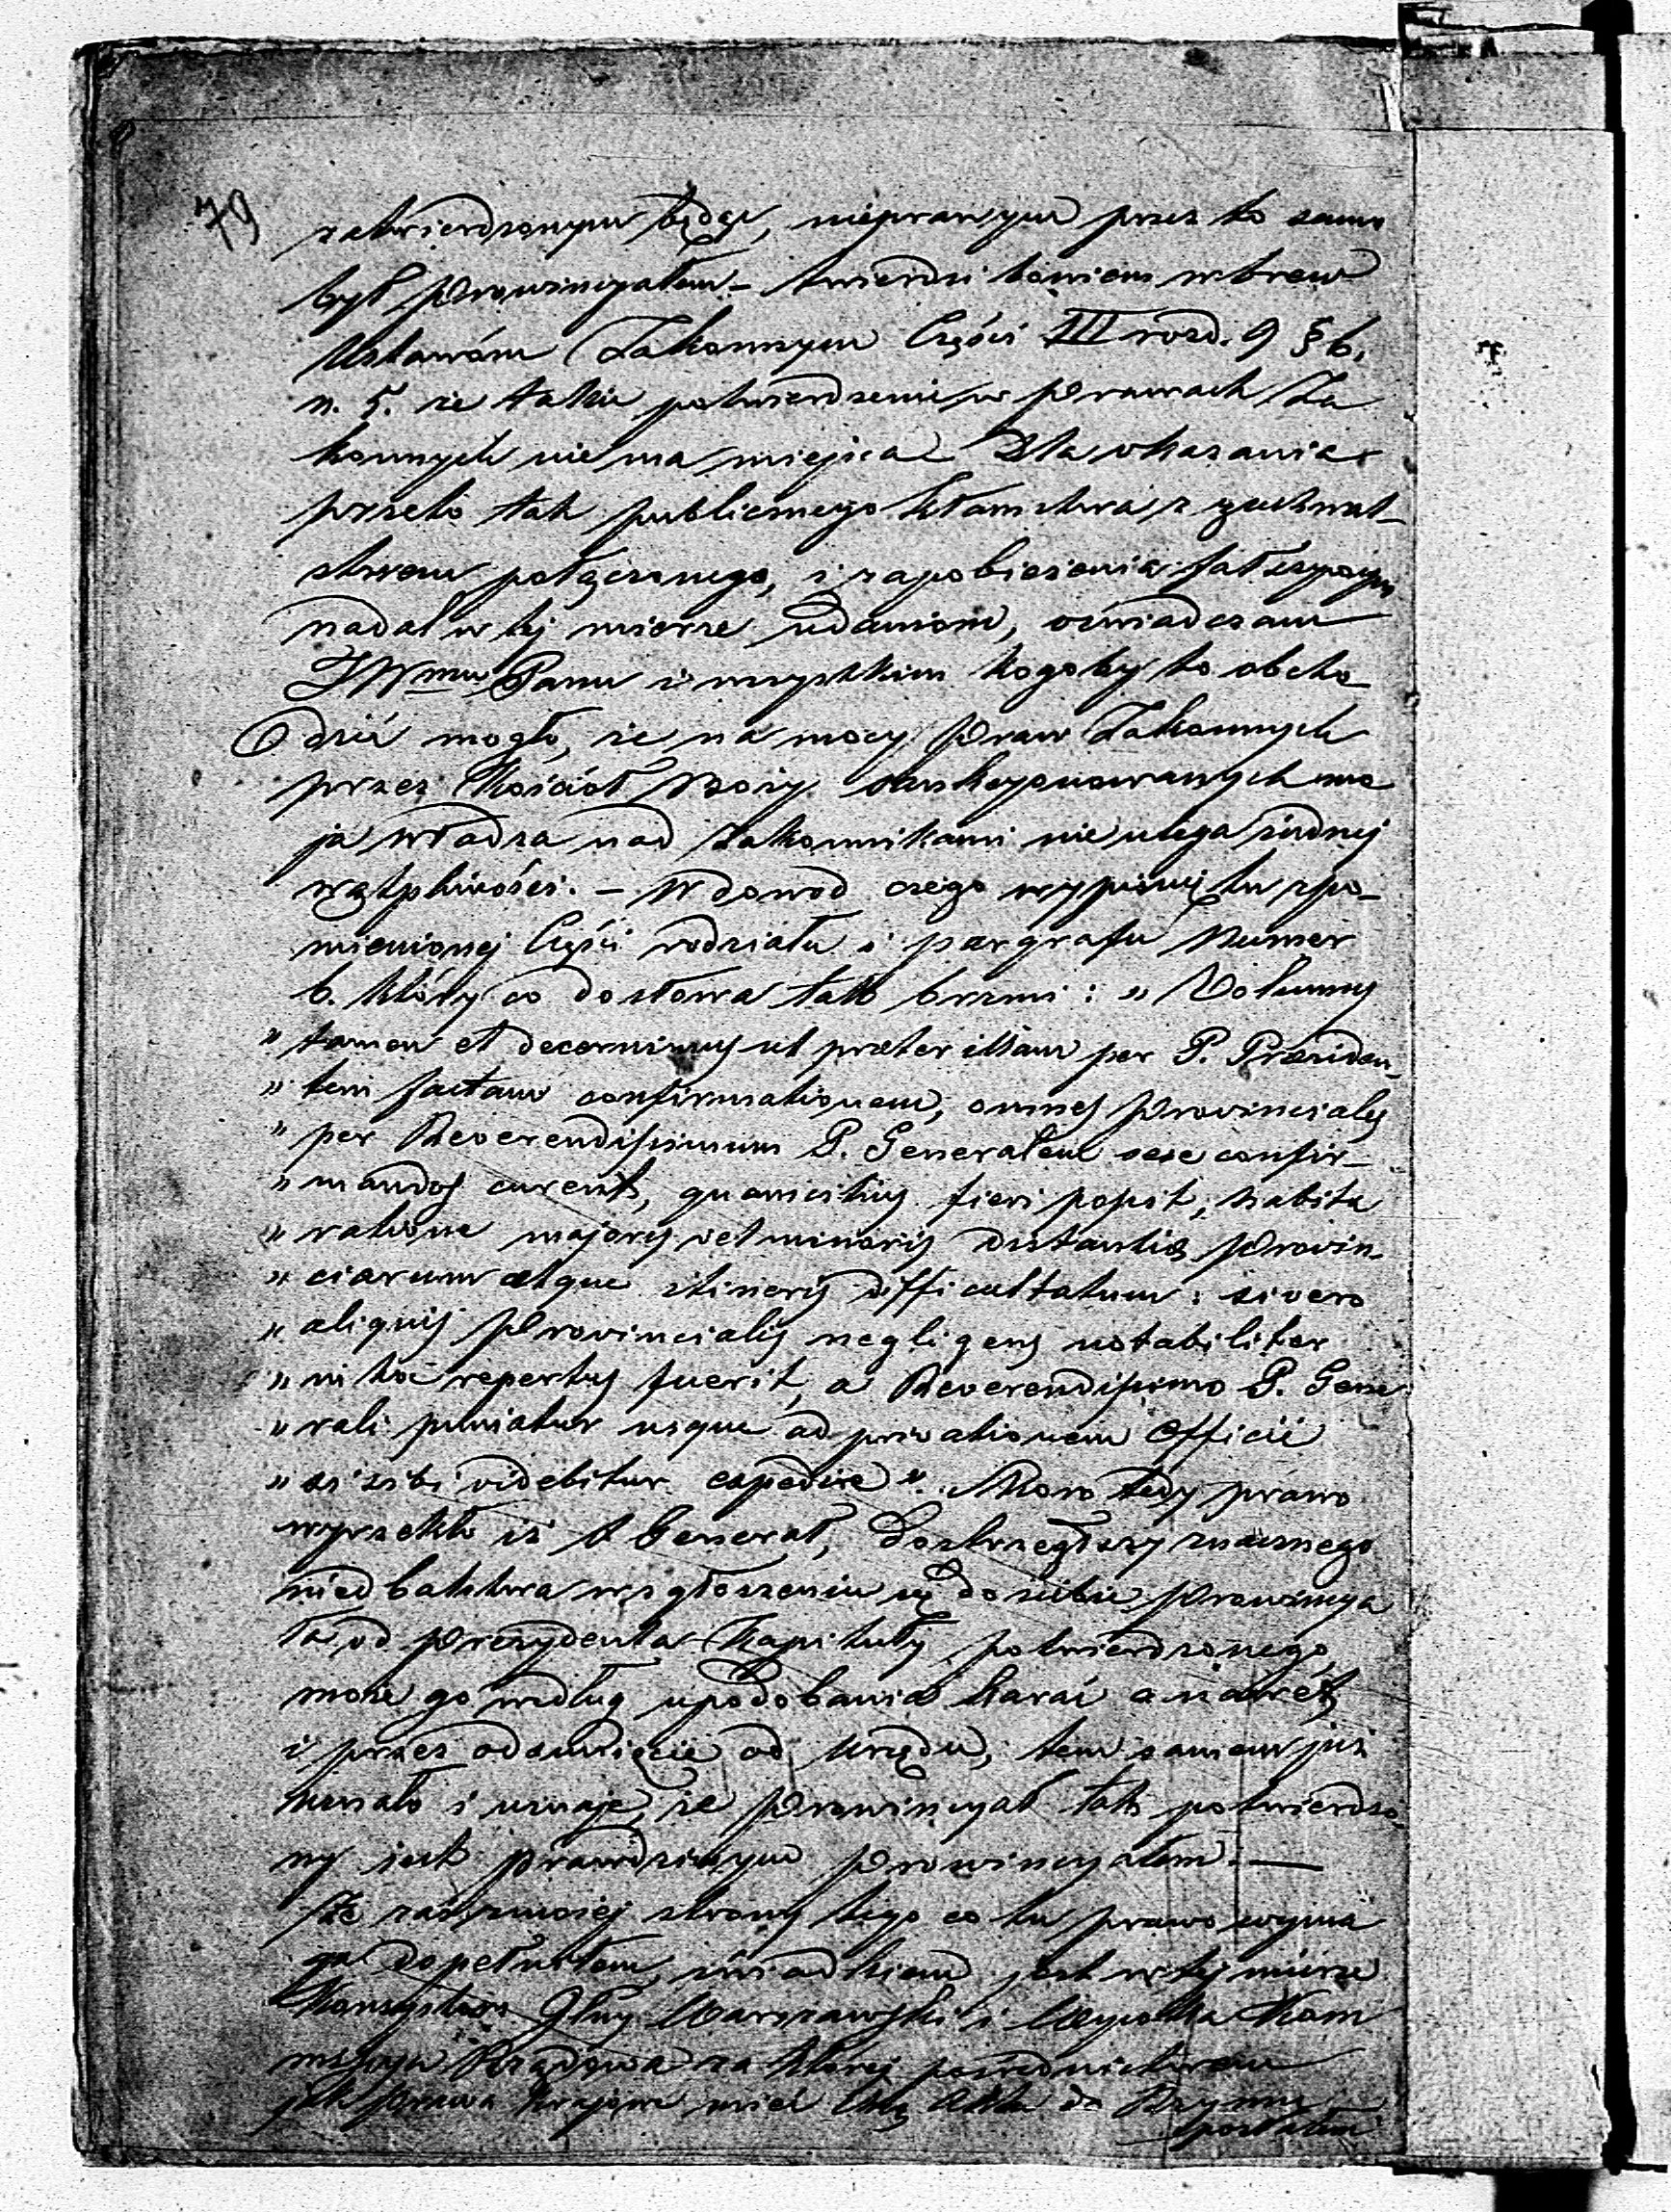 79
zatwierdzonym będąc, nieprawym przez to samo
był Prowincyałem – twierdzi bowiem wbrew
Ustawóm Zakonnym Części III rozd. 9 § 6.
n. 5. że takie potwierdzenie w Prawach Za
konnych nie ma miejsca – Dla okazania
przeto tak publicznego kłamstwa z zuchwal–
stwem połączonego, i zapobieżenia fałszywym
nadal w tej mierze udaniom, oświadczam
JWmu Panu i wszystkim kogoby to obcho
dzić mogło, że na mocy Praw Zakonnych
przez Kościół Boży sankcyonowanych mo
ja władza nad Zakonnikami nie ulega żadnej
wątpliwości. – W dowod czego wypisuję tu spo–
mienionej Części rodziału i pargrafu Numer
6. który co do słowa tak brzmi: „ Volumus
„ tamen et decernimus ut præter illam per P. Præsiden–
„ tem factam confirmationem, omnes Provinciales
„ per Reverendissimum P. Generalem sese confir–
„ mandos curent, quamcitius fieri possit, habita
„ ratione majoris vel minoris distantiæ Provin–
„ ciarum atque itineris difficultatum: si vero
„ aliquis Provincialis negligens notabiliter
„ in hoc repertus fuerit, a Reverendissimo P. Gene
„ rali puniatur usque ad privationem Officii
„ si sibi videbitur expedire". Skoro tedy prawo
wyrzekło iż Generał, dostrzegłszy znacznego
niedbalstwa w zgłoszeniu się do siebie Prowincya
ła od Prezydenta Kapituły potwierdzonego,
może go według upodobania karać a nawet
i przez odsunięcie od Urzędu, tem samem już
uznało i uznaje, że Prowincyał tak potwierdzo
ny jest prawdziwym Prowincyałem. —
Że zaś z mojej strony tego co tu prawo wyma
ga dopełniłem, świadkiem jest w tej mierze
Konsystorz Jłny Warszawski i Wysoka Kom
missyja Rządowa za której pośrednictwem
jak Prawa Krajowe mieć chcą Akta do Rzymu
posłałem